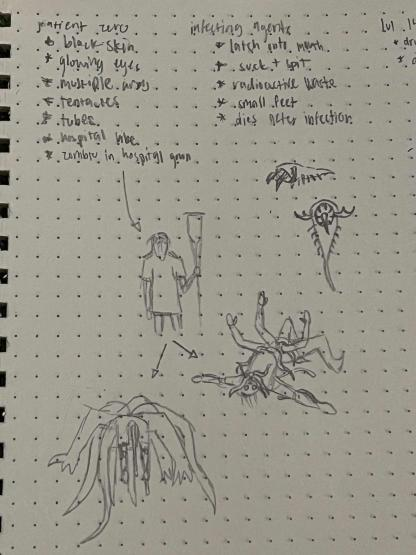 patient zero
* black skin
* glowing eyes
* multiple arms
* tentacles
* tubes
* hospital
* zombie in hospital gown
infecting agents
* latch onto mouth
* suck + spit
* radioactive waste
* small feet
* dies after infection
lvl